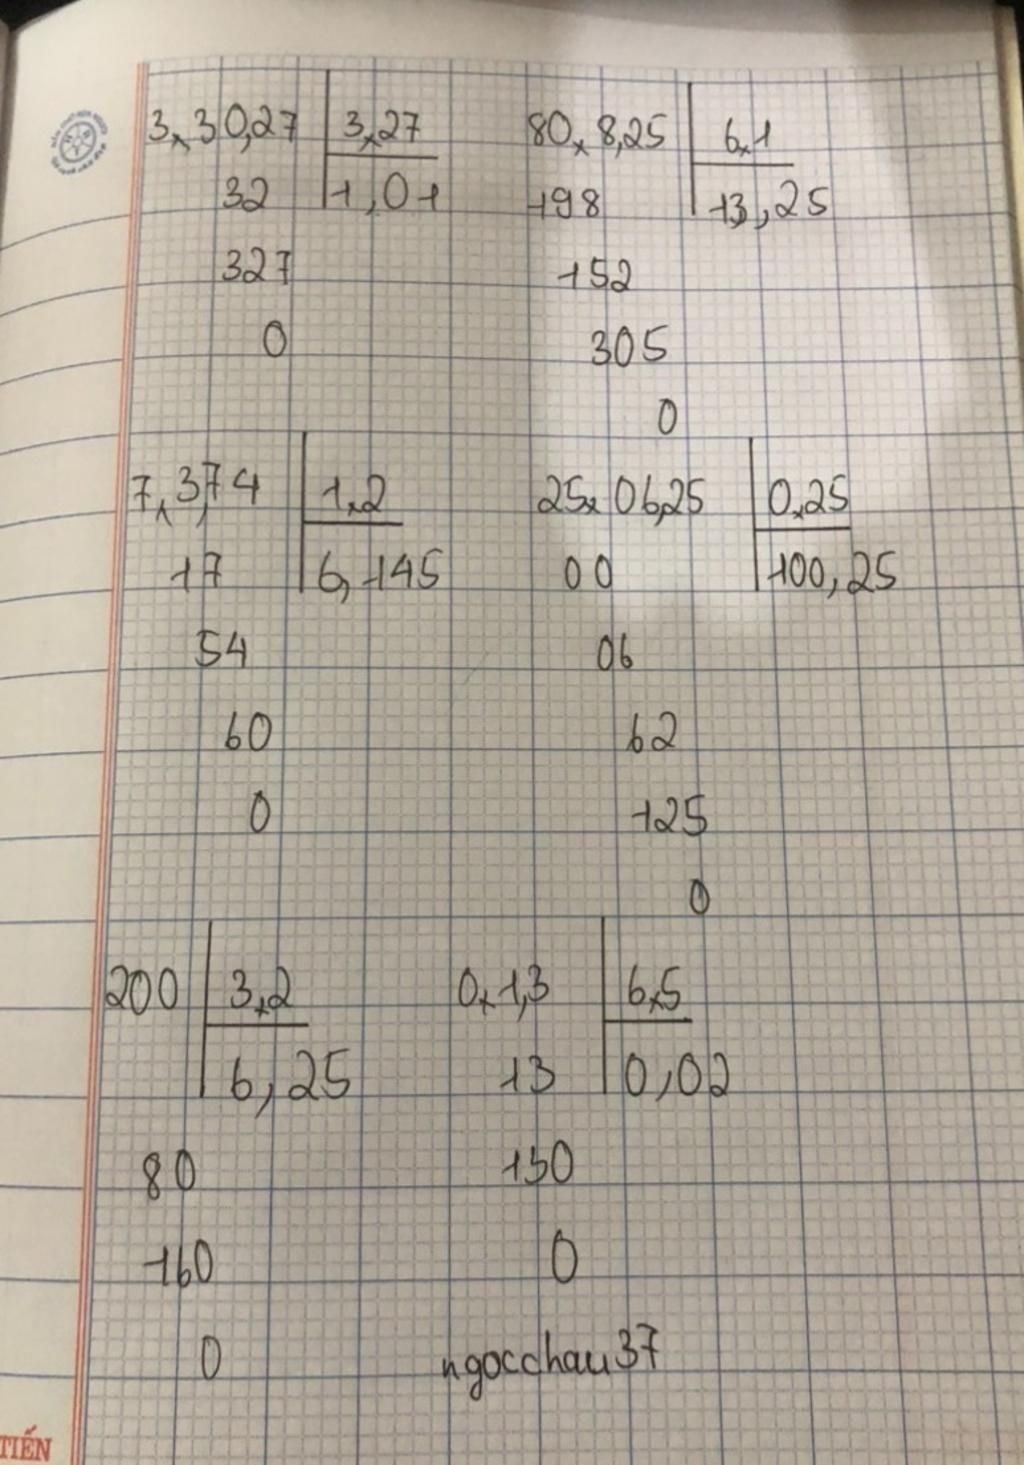 3,30,27 | 3,27
32 | 1,01
327
0
80,8,25 | 6,1
198 | 13,25
152
305
0
7,3,74 | 1,2
17 | 6,145
54
60
0
25,06,25 | 0,25
00 | 100,25
06
62
125
0
200 | 3,2
6,25
80
160
0
0,1,3 | 6,5
13 | 0,02
130
0
ngocchau37
TIẾN